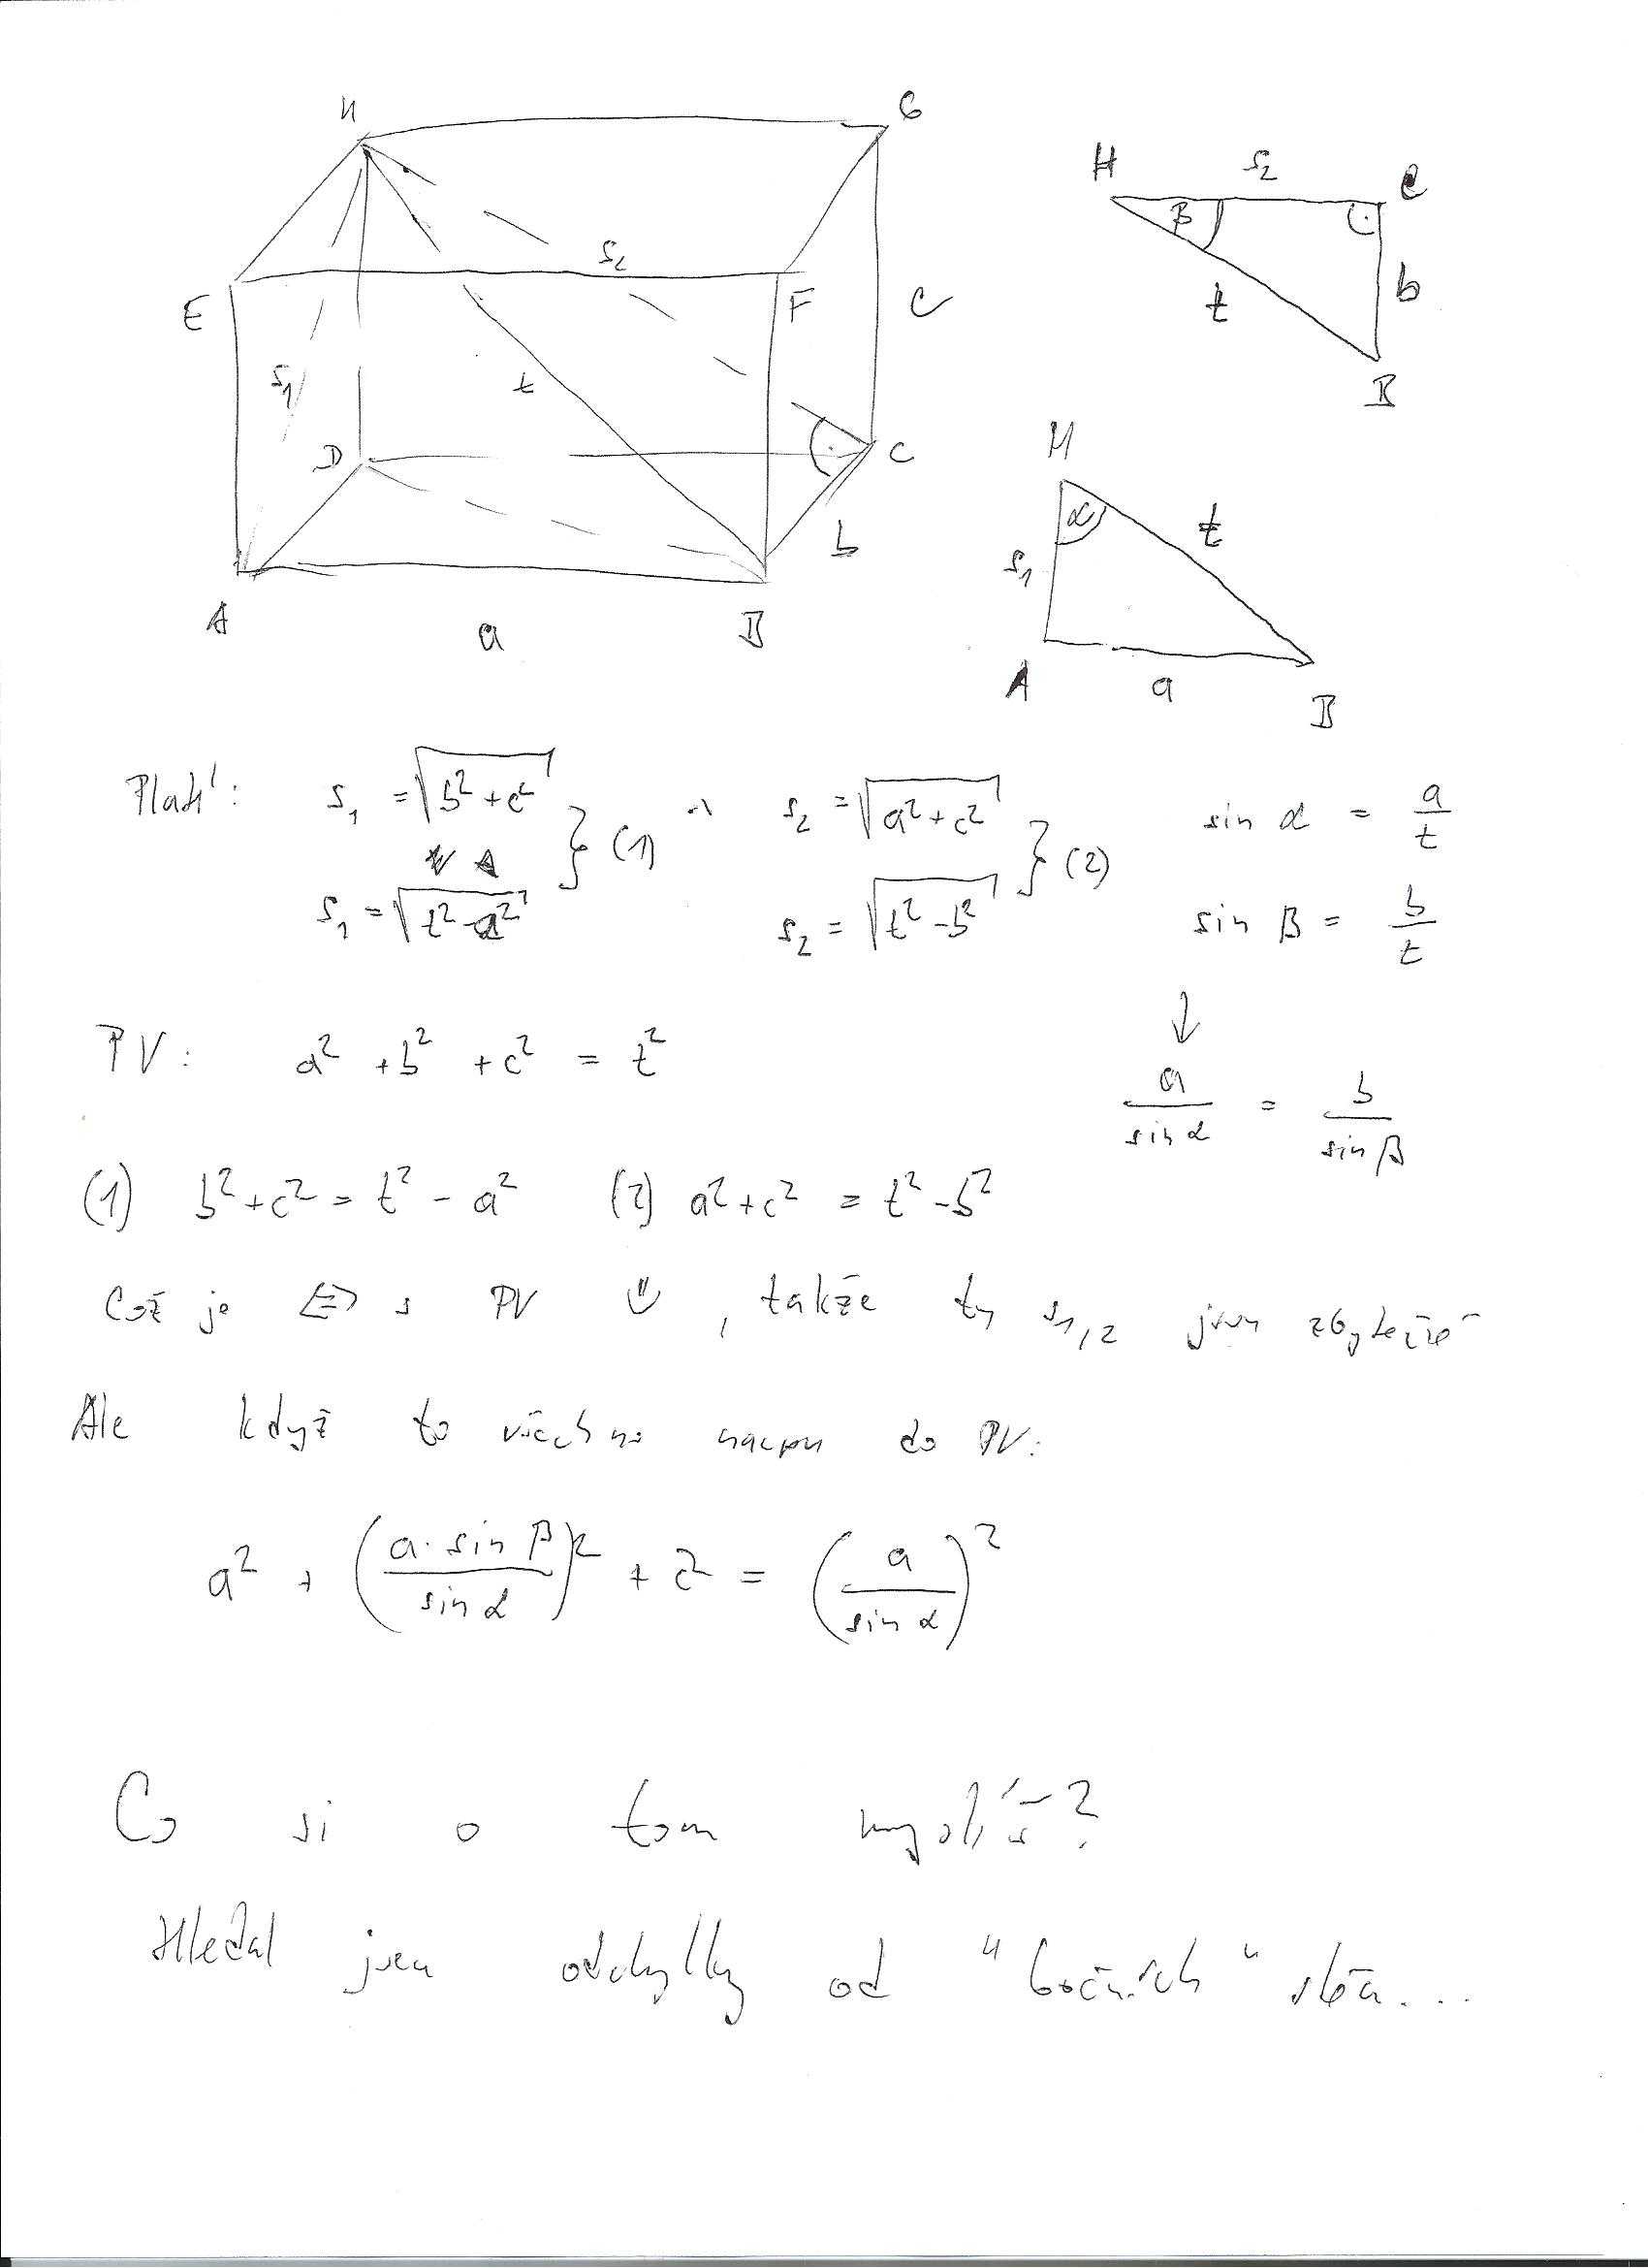 H G
s₂
E F C
s₁ t
D C
b
A a B
H s₂ C
β
t b
B
H
α t
s₁
A a B
Platí: s₁ = √(b² + c²) } (1) ∧ s₂ = √(a² + c²) } (2) sin α = a/t
s₁ = √(t² - a²) s₂ = √(t² - b²) sin β = b/t
↓
PV: a² + b² + c² = t² a/sin α = b/sin β
(1) b² + c² = t² - a² (2) a² + c² = t² - b²
Což je ⇔ s PV, takže ty s₁,₂ jsou zbytečné
Ale když to všechno nacpu do PV:
a² + (a · sin β / sin α)² + c² = (a / sin α)²
Co si o tom myslíš?
Hledal jsem odchylky od "bočních" stěn...